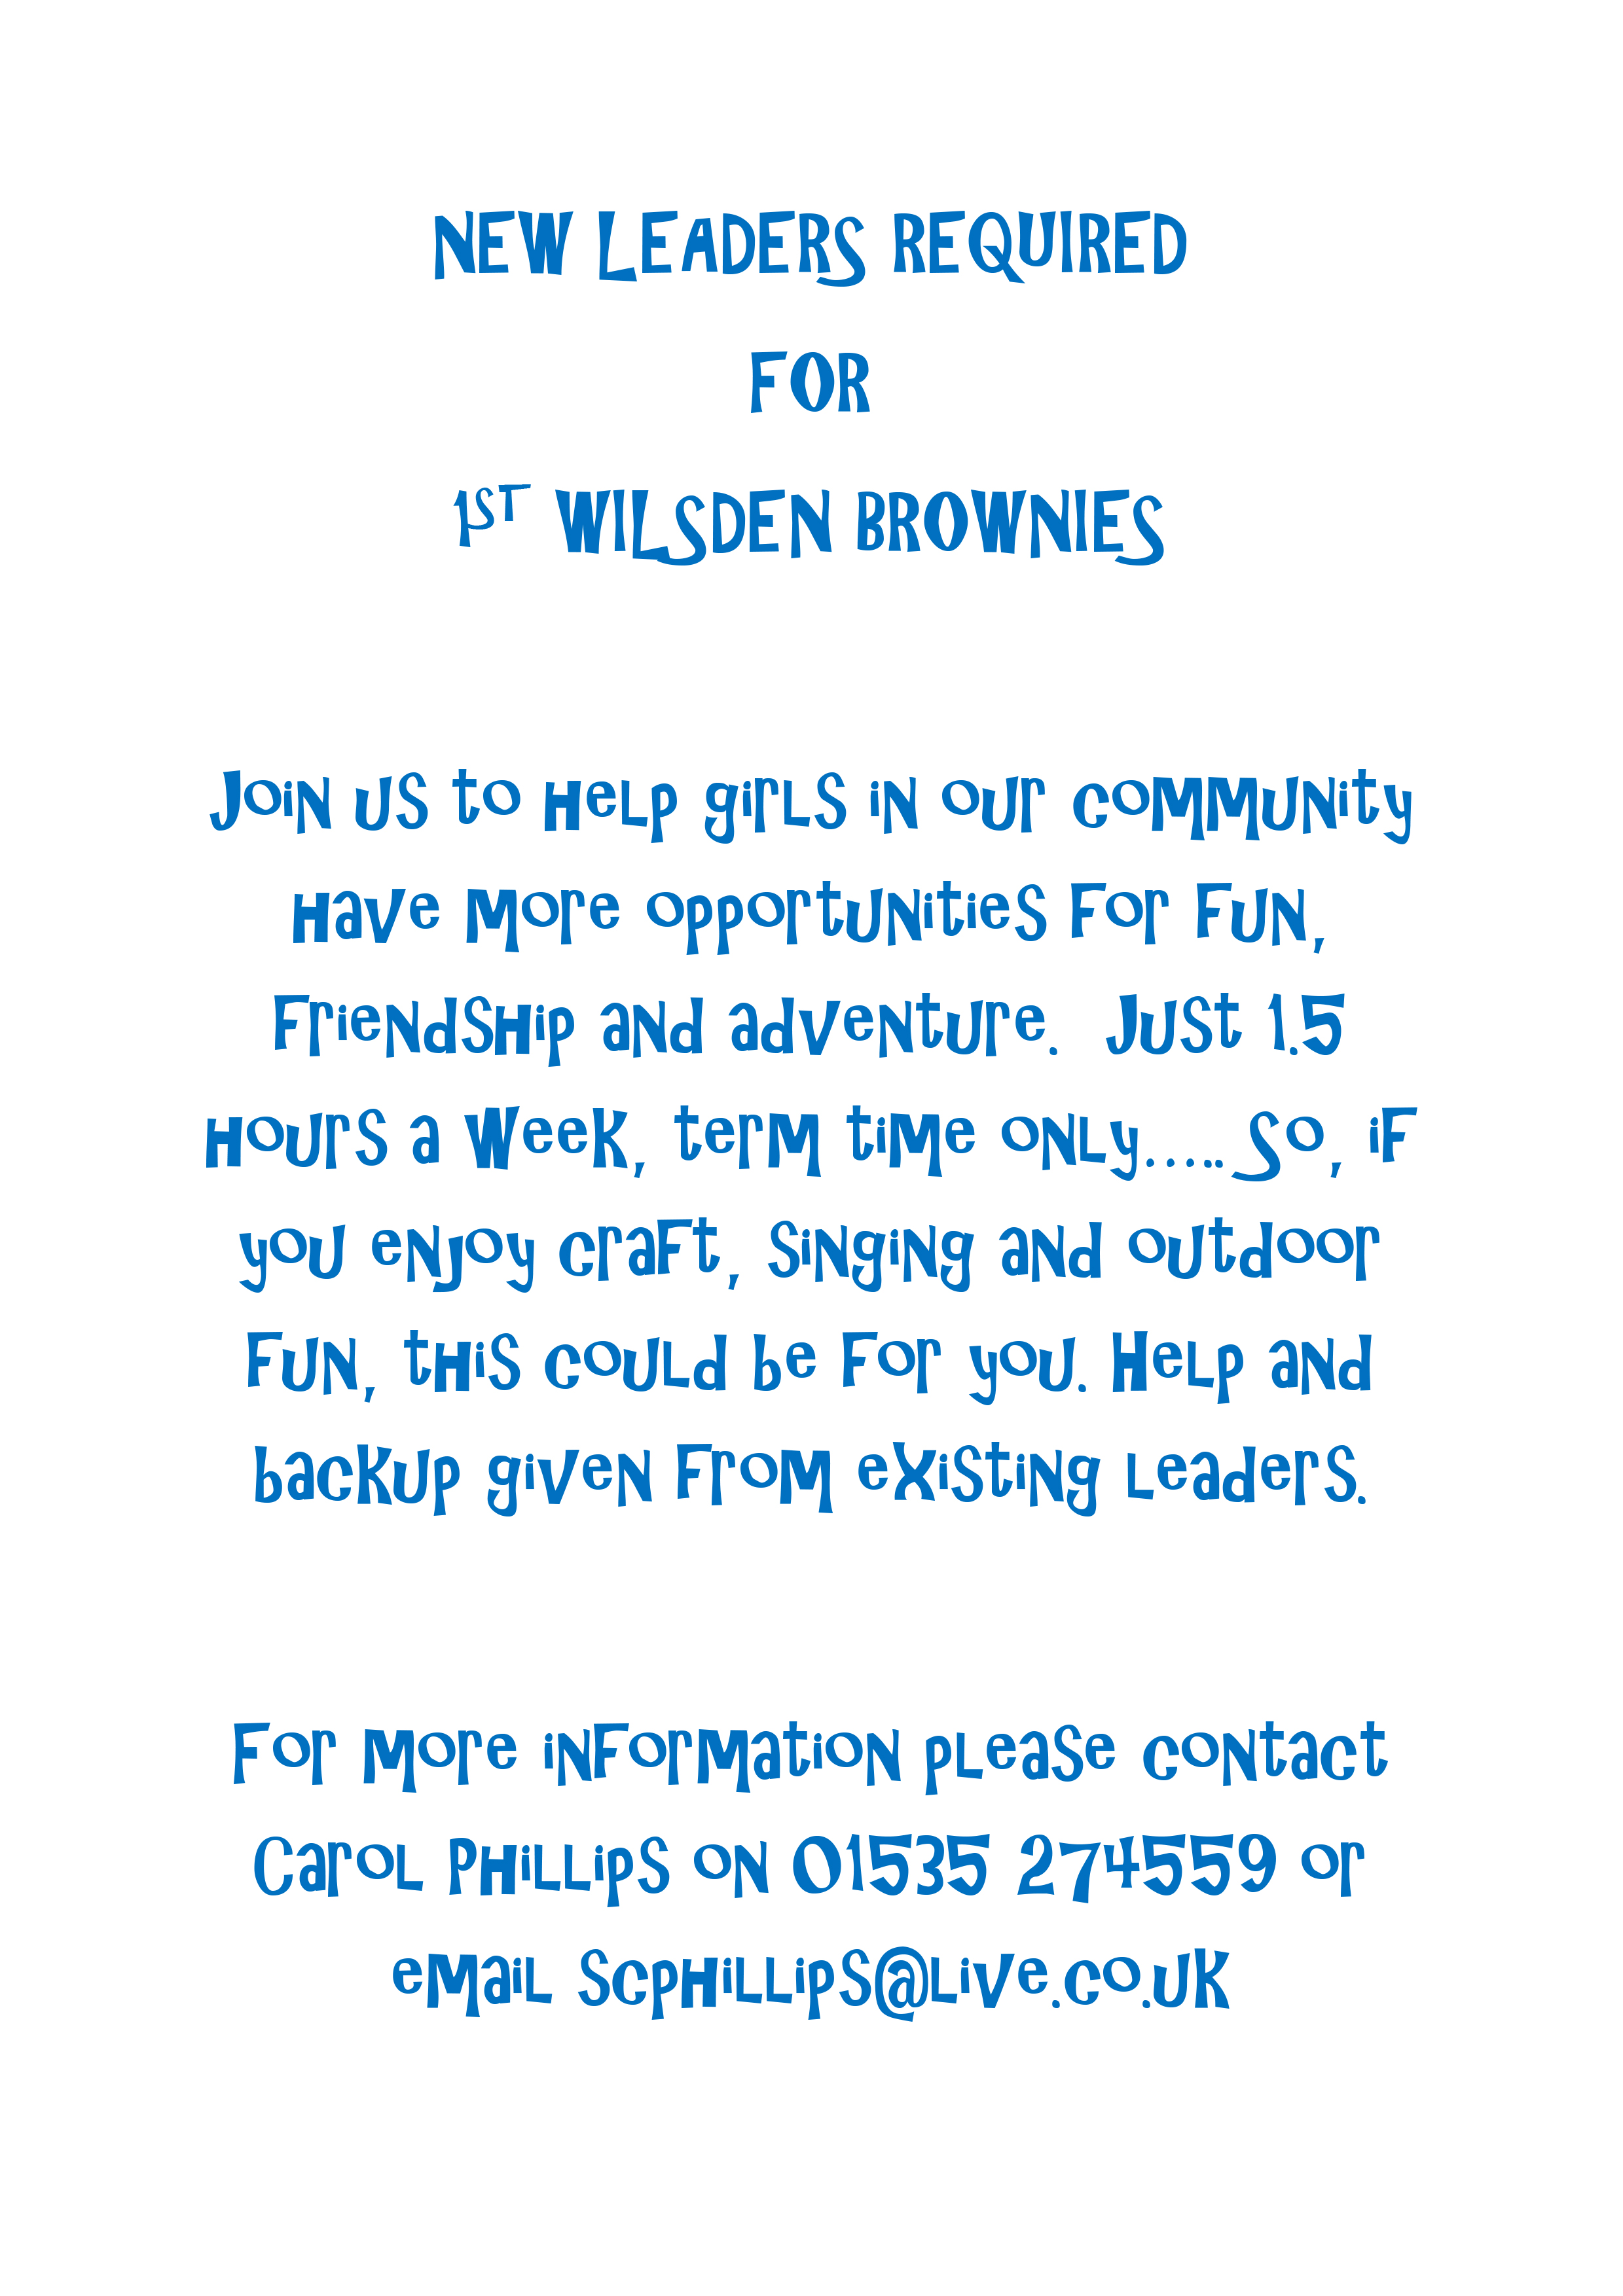 NEW LEADERS REQUIRED
FOR
1ST WILSDEN BROWNIES
Join us to help girls in our community
have more opportunities for fun,
friendship and adventure. Just 1.5
hours a week, term time only..... So, if
you enjoy craft, singing and outdoor
fun, this could be for you. Help and
backup given from existing leaders.
For more information please contact
Carol Phillips on 01535 274559 or
email scphillips@live.co.uk